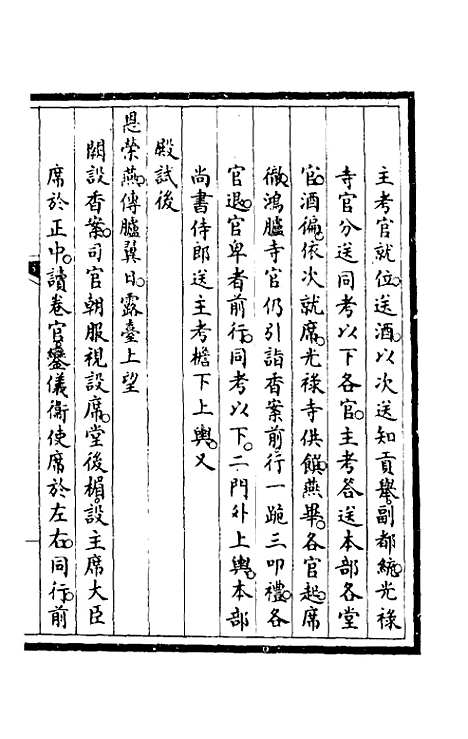 主考官就位。送酒。以次送知貢舉。副都統。光祿
寺官分送同考以下各官。主考答送本部各堂
官。酒徧。依次就席。光祿寺供饌。燕畢。各官起席
徹。鴻臚寺官仍引詣香案前。行一跪三叩禮。各
官退。官卑者前行。同考以下。二門外上輿。本部
尚書侍郎送主考檐下上輿。又
殿試後
恩榮燕。傳臚翼日。露臺上望
闕設香案。司官朝服視設席。堂後楣。設主席大臣
席於正中。讀卷官鑾儀衞使席於左右。同行前